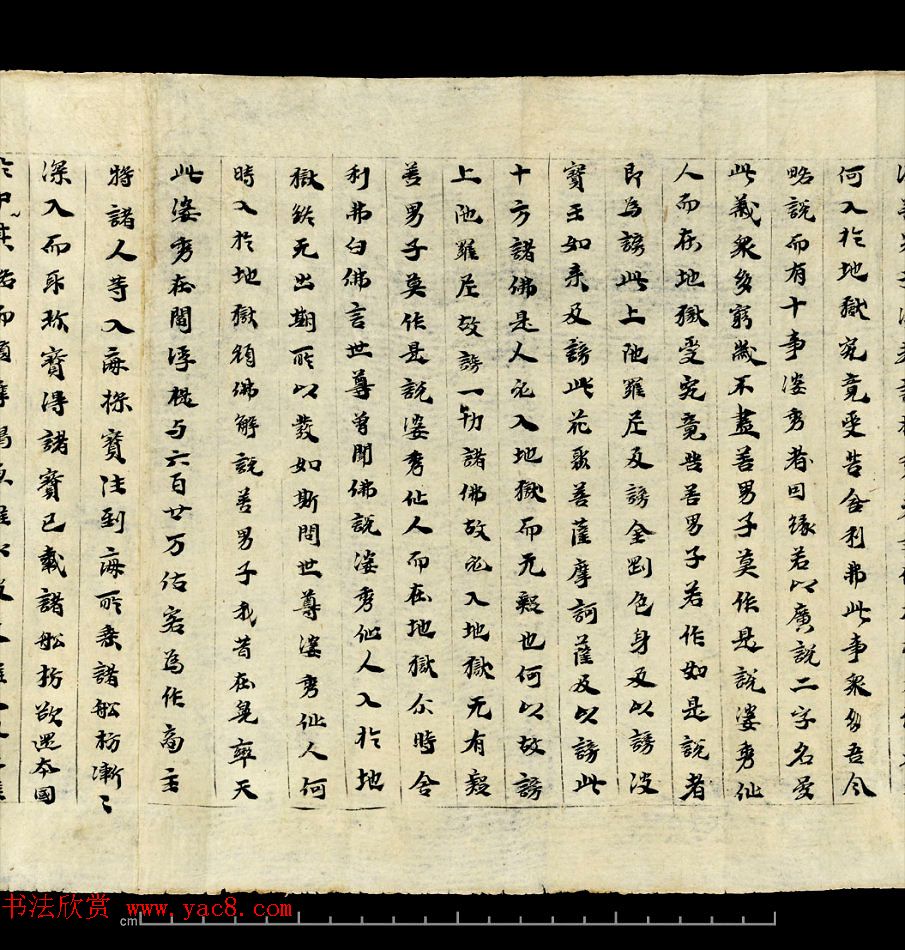 何入於地獄究竟受苦舍利弗此事衆多吾今
略說而有十事婆秀者因緣若以廣說二字名義
此義衆多窮滅不盡善男子莫作是說婆秀仙
人而在地獄受究竟苦善男子若作如是說者
即為謗此上陁羅尼及謗金剛色身及以謗波
寶王如来及謗此花聚菩薩摩訶薩及以謗此
十方諸佛是人必入地獄而无疑也何以故謗
上陁羅尼故謗一切諸佛故必入地獄无有疑
善男子莫作是說婆秀仙人而在地獄尒時舍
利弗白佛言世尊曽聞佛說婆秀仙人入於地
獄終无出期所以發如斯問世尊婆秀仙人何
時入於地獄願佛解說善男子我昔在兜率天
此婆秀在閻浮提与六百廿万估客為作商主
将諸人等入海採寶往到海所乗諸舩舫漸〻
深入而取珎寶得諸寶已載諸舩舫欲還本國
於中
书法欣赏 www.yac8.com
cm